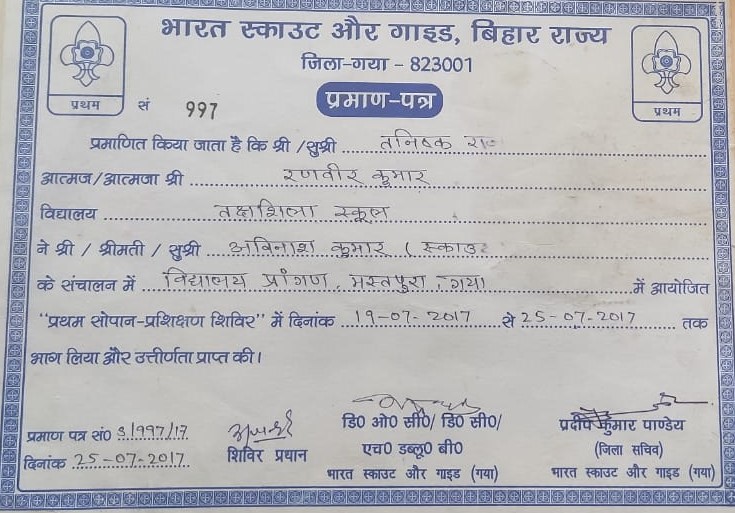 भारत स्काउट और गाइड, बिहार राज्य
जिला-गया - 823001
प्रथम सं 997 प्रमाण-पत्र प्रथम
प्रमाणित किया जाता है कि श्री /सुश्री ..... तनिष्क राज
आत्मज/आत्मजा श्री ..... रणवीर कुमार
विद्यालय ..... तक्षशिला स्कूल
ने श्री / श्रीमती / सुश्री ... अविनाश कुमार ( स्काउट
के संचालन में ... विद्यालय प्रांगण, मस्तपुरा, गया ..... में आयोजित
"प्रथम सोपान-प्रशिक्षण शिविर" में दिनांक ...19-07-2017...से 25-07-2017... तक
भाग लिया और उत्तीर्णता प्राप्त की।
प्रमाण पत्र सं0 S/997/17
दिनांक 25-07-2017
शिविर प्रधान
डि0 ओ0 सी0/ डि0 सी0/
एच0 डब्लू0 बी0
भारत स्काउट और गाइड (गया)
प्रदीप कुमार पाण्डेय
(जिला सचिव)
भारत स्काउट और गाइड (गया)